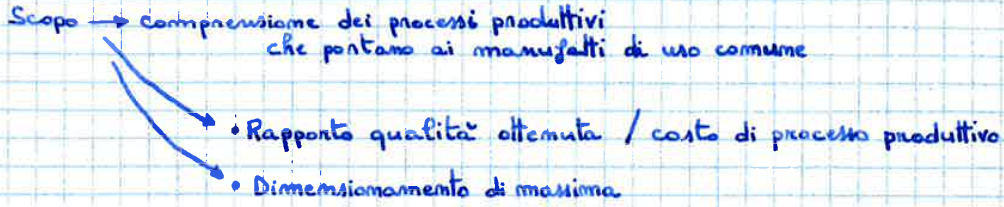 Scopo → comprensione dei processi produttivi
che portano ai manufatti di uso comune
• Rapporto qualità ottenuta / costo di processo produttivo
• Dimensionamento di massima